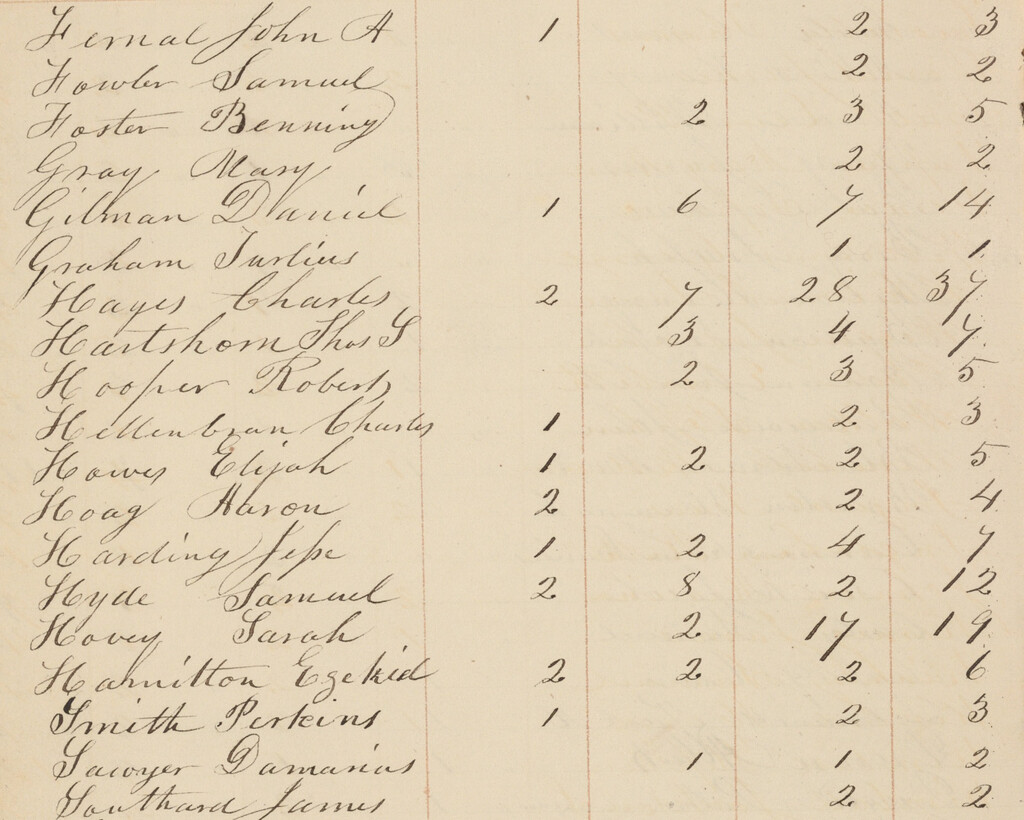 Fernal John A 1 2 3
Fowler Samuel 2 2
Foster Benning 2 3 5
Gray Mary 2 2
Gilman Daniel 1 6 7 14
Graham 1 1
Hayes Charles 2 7 28 37
Hartshorn Thos S 3 4 7
Hooper Robert 2 3 5
Charles 1 2 3
Howes Elijah 1 2 2 5
Hoag Aaron 2 2 4
Harding Jesse 1 2 4 7
Hyde Samuel 2 8 2 12
Hovey Sarah 2 17 19
Hamilton Ezekiel 2 2 2 6
Smith Perkins 1 2 3
Sawyer Damarius 1 1 2
Southard James 2 2